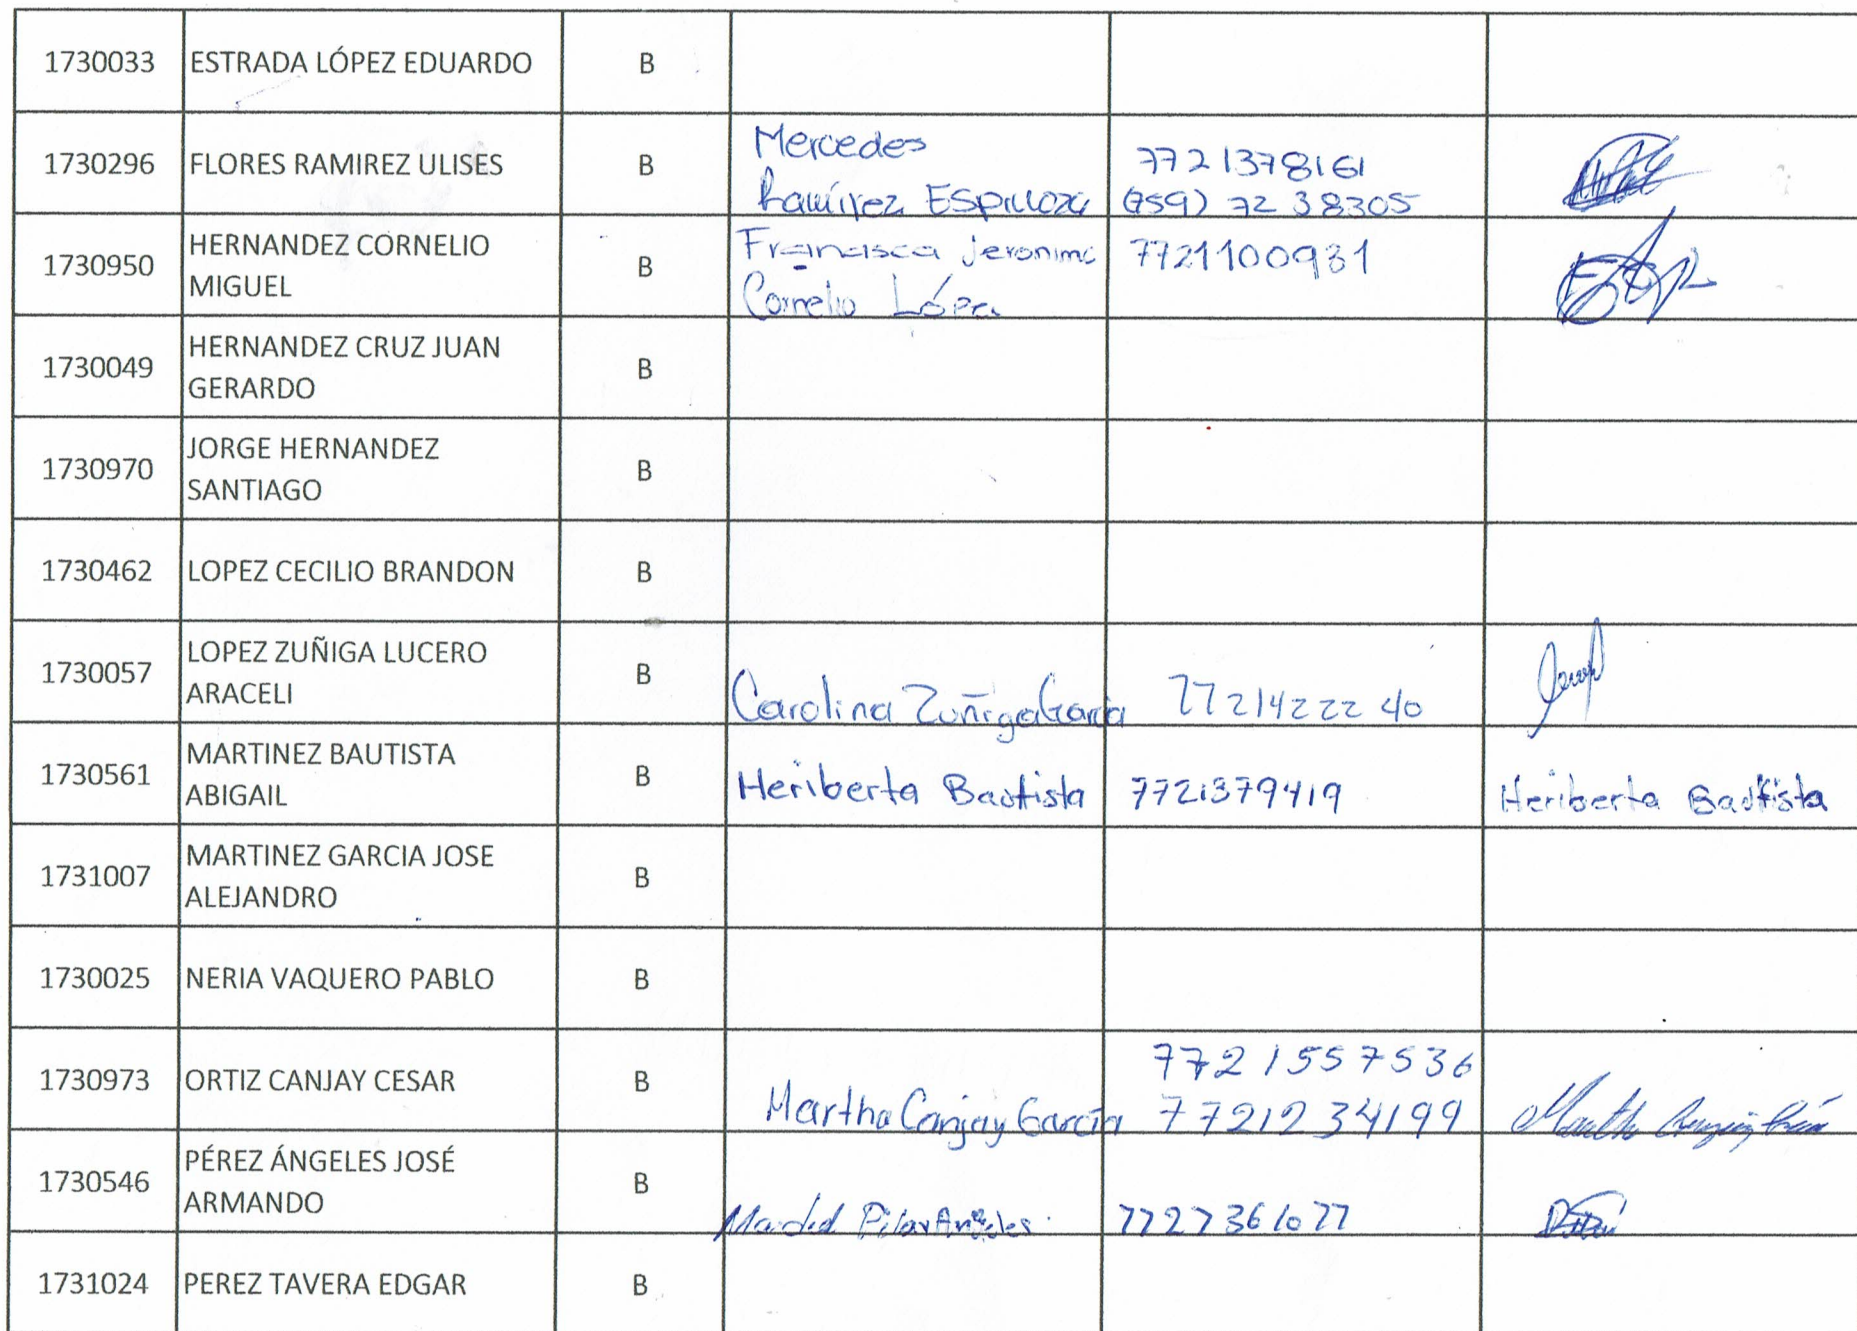 1730033 ESTRADA LÓPEZ EDUARDO B
1730296 FLORES RAMIREZ ULISES B Mercedes 7721378161
Ramírez (759) 72 38305
1730950 HERNANDEZ CORNELIO B Francisca Jeronima 7721100931
MIGUEL Cornelio López
1730049 HERNANDEZ CRUZ JUAN B
GERARDO
1730970 JORGE HERNANDEZ B
SANTIAGO
1730462 LOPEZ CECILIO BRANDON B
1730057 LOPEZ ZUÑIGA LUCERO B
ARACELI Carolina Zuñiga García 7721422240
1730561 MARTINEZ BAUTISTA B
ABIGAIL Heriberta Bautista 7721379419 Heriberta Bautista
1731007 MARTINEZ GARCIA JOSE B
ALEJANDRO
1730025 NERIA VAQUERO PABLO B
1730973 ORTIZ CANJAY CESAR B 7721557536
Martha Canjay García 7721234199 Martha Canjay García
1730546 PÉREZ ÁNGELES JOSÉ B
ARMANDO Pilar Angeles 7727361077
1731024 PEREZ TAVERA EDGAR B